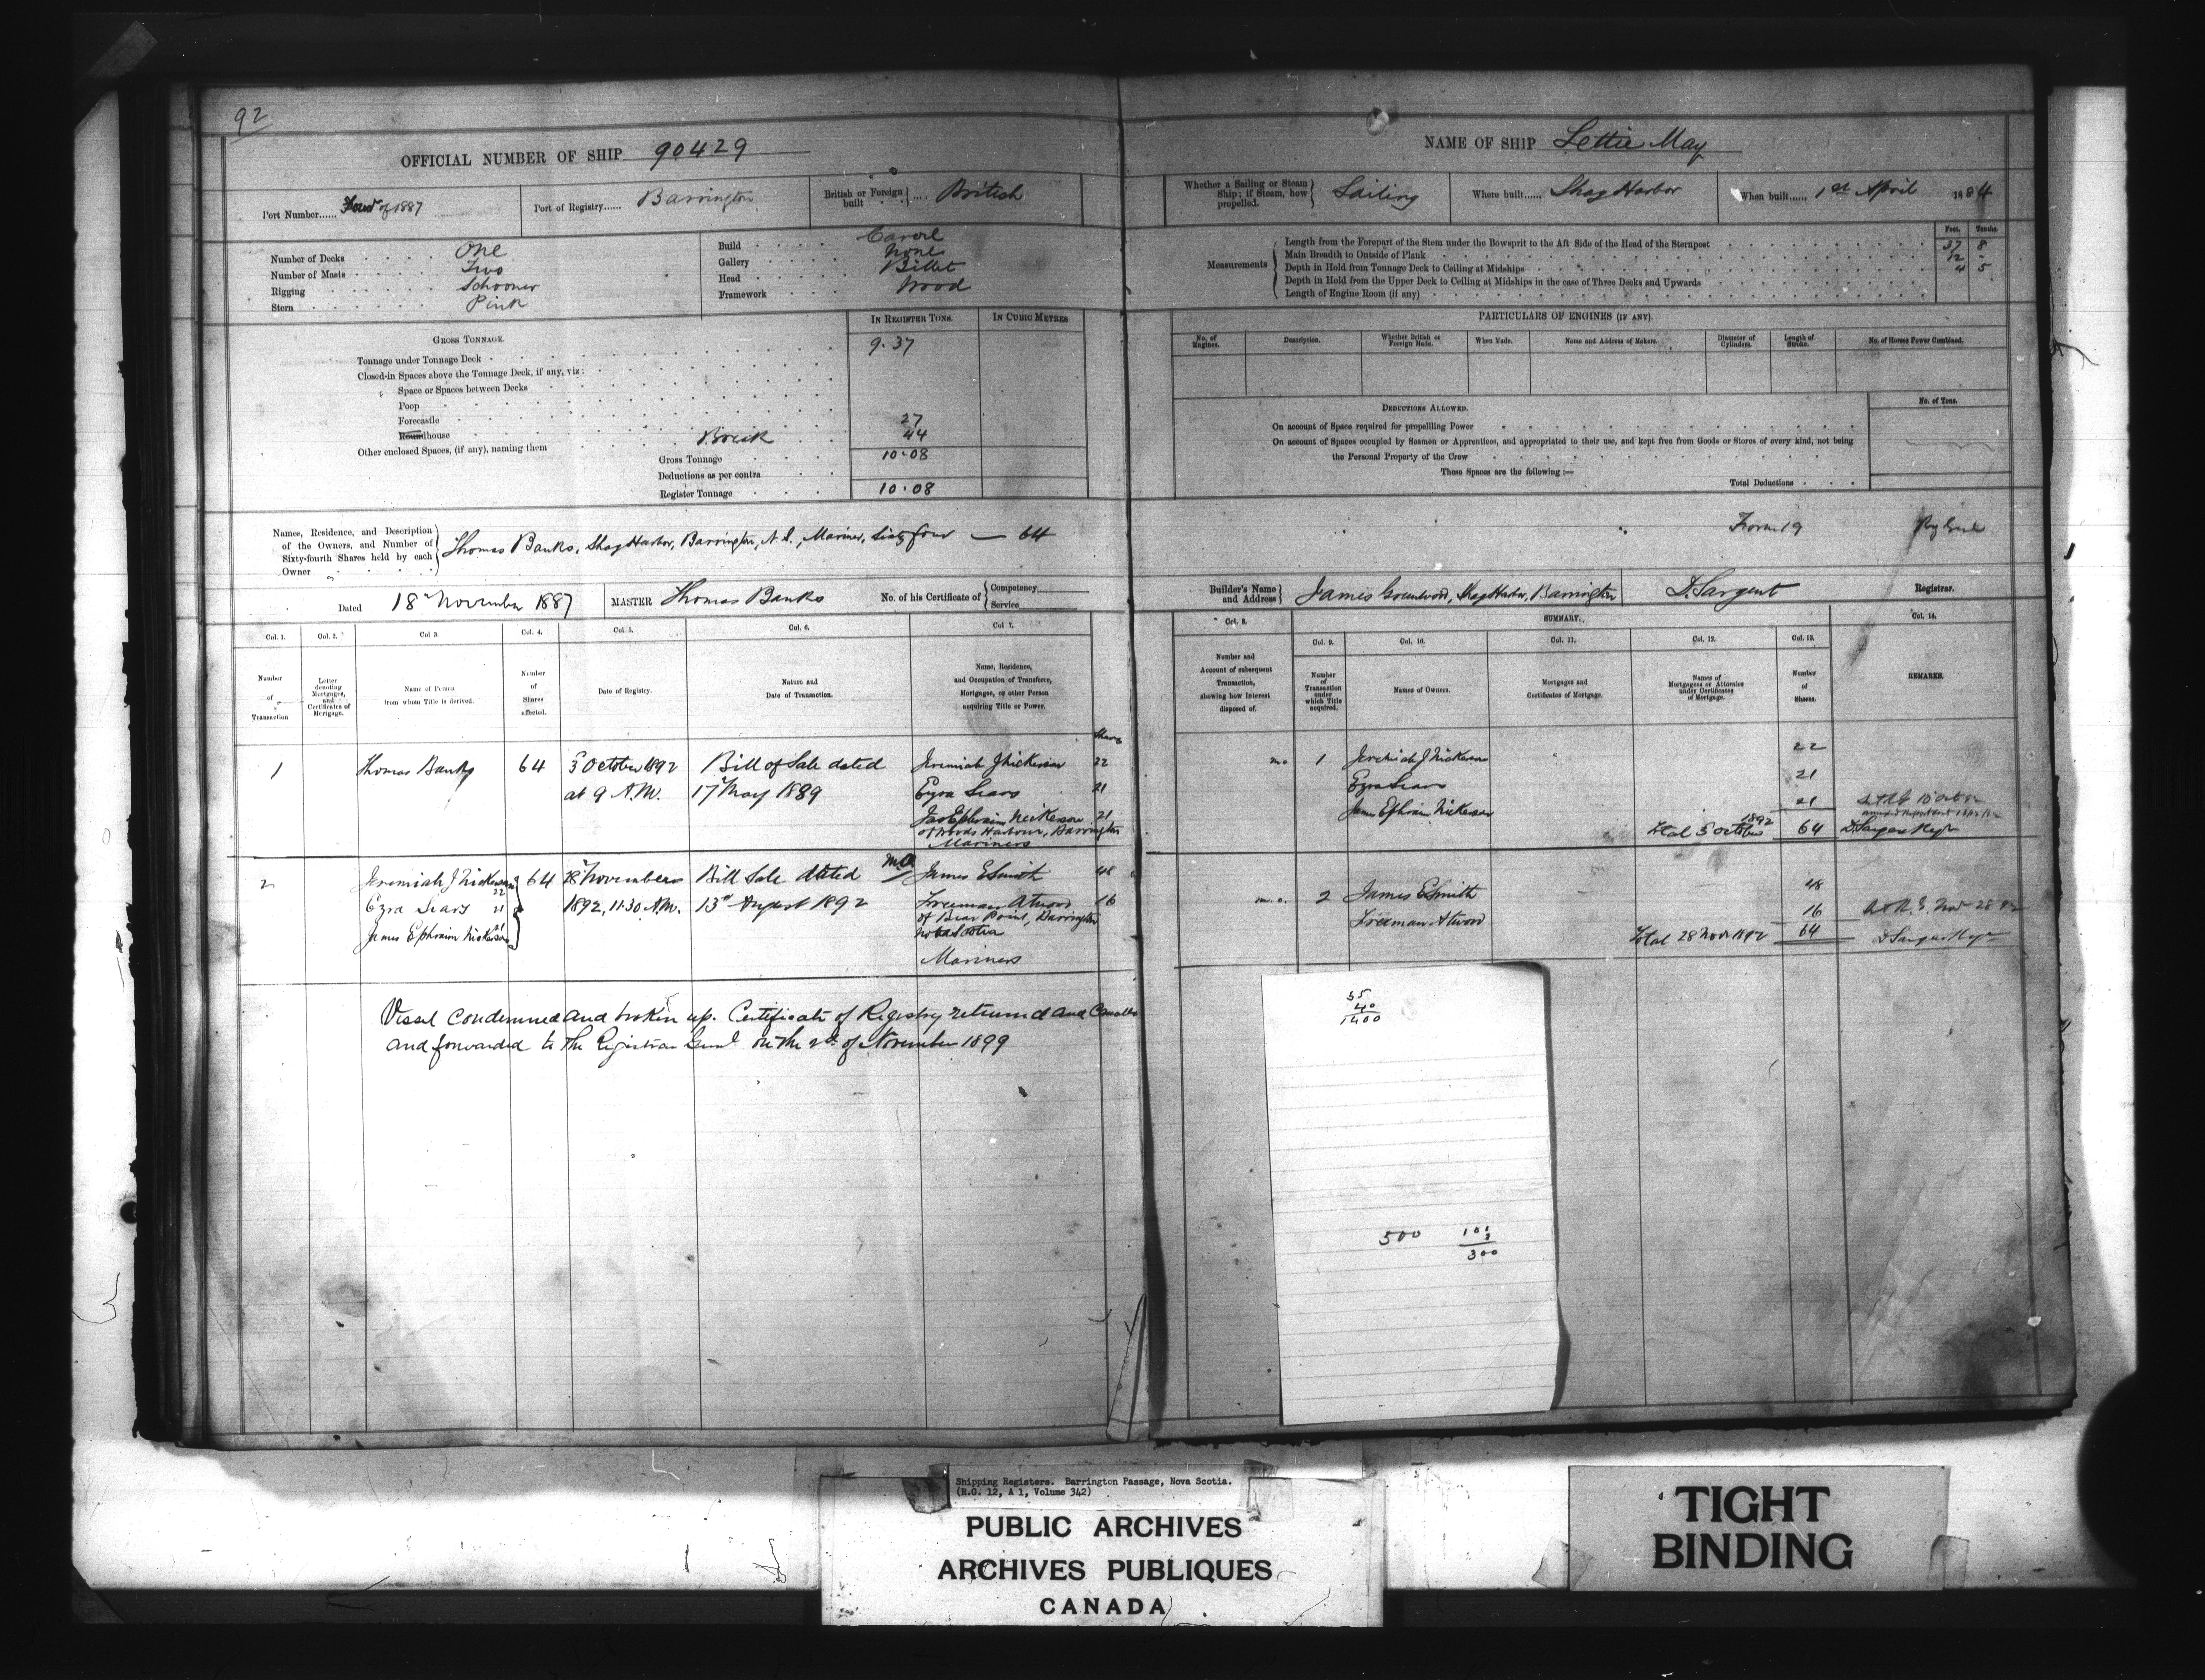 92
OFFICIAL NUMBER OF SHIP 90429
Port Number...... Four of 1887
Port of Registry...... Barrington
British or Foreign built .... British
Number of Decks One
Number of Masts Two
Rigging Schooner
Stern Pink
Build Carvel
Gallery None
Head Billet
Framework Wood
GROSS TONNAGE.
IN REGISTER TONS.
IN CUBIC METRES
Tonnage under Tonnage Deck 9.37
Closed-in Spaces above the Tonnage Deck, if any, viz:
Space or Spaces between Decks
Poop
Forecastle 27
Roundhouse Break 44
Other enclosed Spaces, (if any), naming them
Gross Tonnage 10.08
Deductions as per contra
Register Tonnage 10.08
Names, Residence, and Description of the Owners, and Number of Sixty-fourth Shares held by each Owner
Thomas Banks, Shag Harbor, Barrington, N.S., Mariner, Sixty four — 64
Dated 18 November 1887
MASTER Thomas Banks
No. of his Certificate of Competency Service
Col. 1. Col. 2. Col 3. Col. 4. Col. 5. Col. 6. Col 7.
Number of Transaction
Letter denoting Mortgages, and Certificates of Mortgage.
Name of Person from whom Title is derived.
Number of Shares affected.
Date of Registry.
Nature and Date of Transaction.
Name, Residence, and Occupation of Transferee, Mortgagee, or other Person acquiring Title or Power.
Shares
1 Thomas Banks 64 5 October 1892 Bill of Sale dated Jeremiah J Nickerson 22
at 9 A.M. 17 May 1889 Ezra Sears 21
Jas Ephraim Nickerson 21
of Woods Harbour, Barrington
Mariners
2 Jeremiah J Nickerson 22 64 28 November Bill Sale dated m.o. James E Smith 48
Ezra Sears 21 1892, 11.30 A.M. 13th August 1892 Freeman Atwood 16
James Ephraim Nickerson 21 of Bear Point, Barrington
Nova Scotia
Mariners
Vessel condemned and broken up. Certificate of Registry returned and Cancelled
and forwarded to the Registrar Genl on the 2d of November 1899
NAME OF SHIP Lettie May
Whether a Sailing or Steam Ship; if Steam, how propelled. Sailing
Where built...... Shag Harbor
When built...... 1st April 1884
Measurements
Feet. Tenths.
Length from the Forepart of the Stem under the Bowsprit to the Aft Side of the Head of the Sternpost 37 8
Main Breadth to Outside of Plank 12 -
Depth in Hold from Tonnage Deck to Ceiling at Midships 4 5
Depth in Hold from the Upper Deck to Ceiling at Midships in the case of Three Decks and Upwards
Length of Engine Room (if any)
PARTICULARS OF ENGINES (IF ANY).
No. of Engines.
Description.
Whether British or Foreign Made.
When Made.
Name and Address of Makers.
Diameter of Cylinders.
Length of Stroke.
No. of Horses Power Combined.
DEDUCTIONS ALLOWED.
No. of Tons.
On account of Space required for propelling Power
On account of Spaces occupied by Seamen or Apprentices, and appropriated to their use, and kept free from Goods or Stores of every kind, not being
the Personal Property of the Crew
These Spaces are the following:—
Total Deductions
Form 19
Builder's Name and Address James Greenwood, Shag Harbor, Barrington
D. Sargent Registrar.
Col. 8. SUMMARY. Col. 14.
Col. 9. Col. 10. Col. 11. Col. 12. Col. 13.
Number and Account of subsequent Transaction, showing how Interest disposed of.
Number of Transaction under which Title acquired.
Names of Owners.
Mortgages and Certificates of Mortgage.
Names of Mortgagees or Attornies under Certificates of Mortgage.
Number of Shares.
REMARKS.
m.o 1 Jeremiah J Nickerson 22
Ezra Sears 21
James Ephraim Nickerson 21
Total 5 October 1892 64 D. Sargent Regr
m.o. 2 James E Smith 48
Freeman Atwood 16
Total 28 Novr 1892 64 D Sargent Regr
35
40
1400
500
300
Shipping Registers. Barrington Passage, Nova Scotia.
(R.G. 12, A 1, Volume 342)
PUBLIC ARCHIVES
ARCHIVES PUBLIQUES
CANADA
TIGHT
BINDING